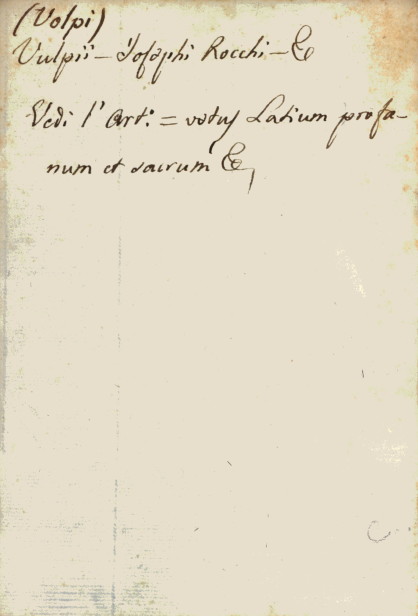 (Volpi)
Vulpii - Josephi Rocchi - &
Vedi l' Art: = vetus Latium profa-
num et sacrum &,